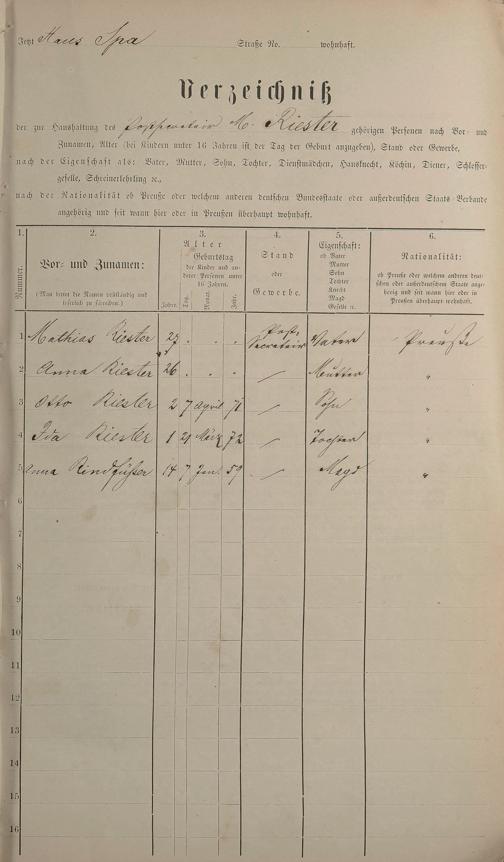 Jetzt Haus Spa Straße No. wohnhaft.
Verzeichniß
der zur Haushaltung des Postsecretair M. Riester gehörigen Personen nach Vor- und
Zunamen, Alter (bei Kindern unter 16 Jahren ist der Tag der Geburt anzugeben), Stand oder Gewerbe,
nach der Eigenschaft als: Vater, Mutter, Sohn, Tochter, Dienstmädchen, Hausknecht, Köchin, Diener, Schlosser-
geselle, Schreinerlehrling ꝛc.,
nach der Nationalität ob Preuße oder welchem anderen deutschen Bundesstaate oder außerdeutschen Staats-Verbande
angehörig und seit wann hier oder in Preußen überhaupt wohnhaft.
1. 2. 3. 4. 5. 6.
Nummer.
Vor- und Zunamen:
(Man bittet die Namen vollständig und
leserlich zu schreiben.)
Alter
Geburtstag
für Kinder und an-
derer Personen unter
16 Jahren.
Jahre. Tag. Monat. Jahr.
Stand
oder
Gewerbe.
Eigenschaft:
ob Vater
Mutter
Sohn
Tochter
Knecht
Magd
Geselle ꝛc.
Nationalität:
ob Preuße oder welchem anderen deut-
schen oder außerdeutschen Staate ange-
hörig und seit wann hier oder in
Preußen überhaupt wohnhaft.
1 Mathias Riester 27 . . . Post-Secretair Vater Preuße
2 Anna Riester 26 . . . — Mutter "
3 Otto Riester 2 7 April 71 — Sohn "
4 Ida Riester 1 21 März 72 — Tochter "
5 Anna Rindfüßer 14 7 Jan. 59 — Magd "
6
7
8
9
10
11
12
13
14
15
16